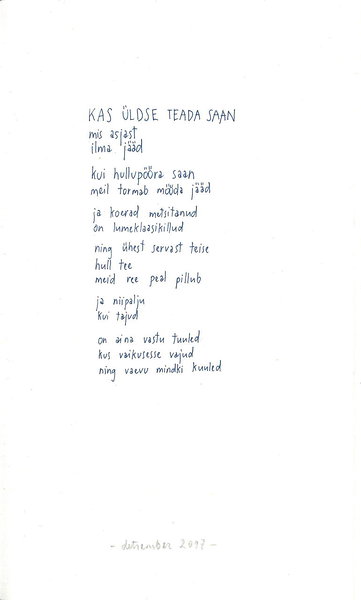 KAS ÜLDSE TEADA SAAN
mis asjast
ilma jääd
kui hullupööra saan
meil tormab mööda jääd
ja koerad metsitanud
on lumeklaasikillud
ning ühest servast teise
hull tee
meid ree peal pillub
ja niipalju
kui tajud
on aina vastu tuuled
kus vaikusesse vajud
ning vaevu mindki kuuled
- detsember